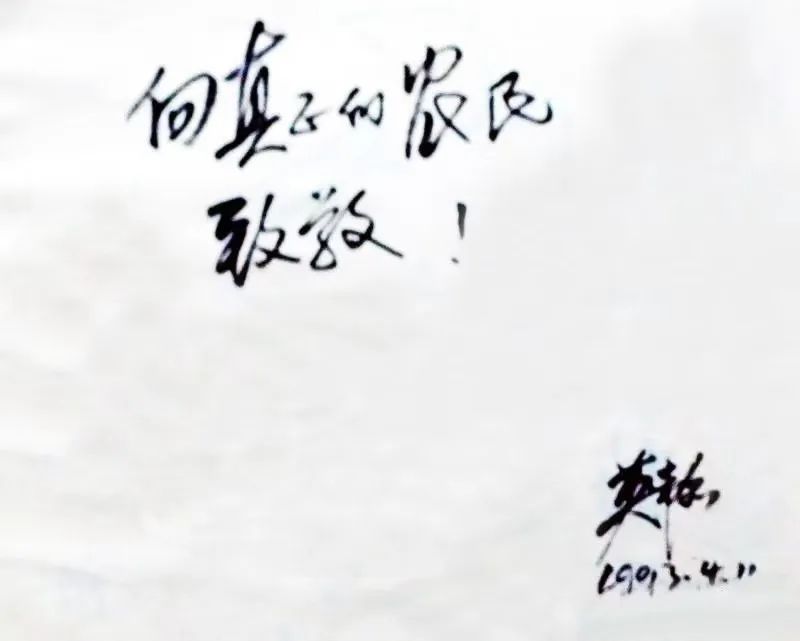 向真正的农民
致敬！
1993.4.11